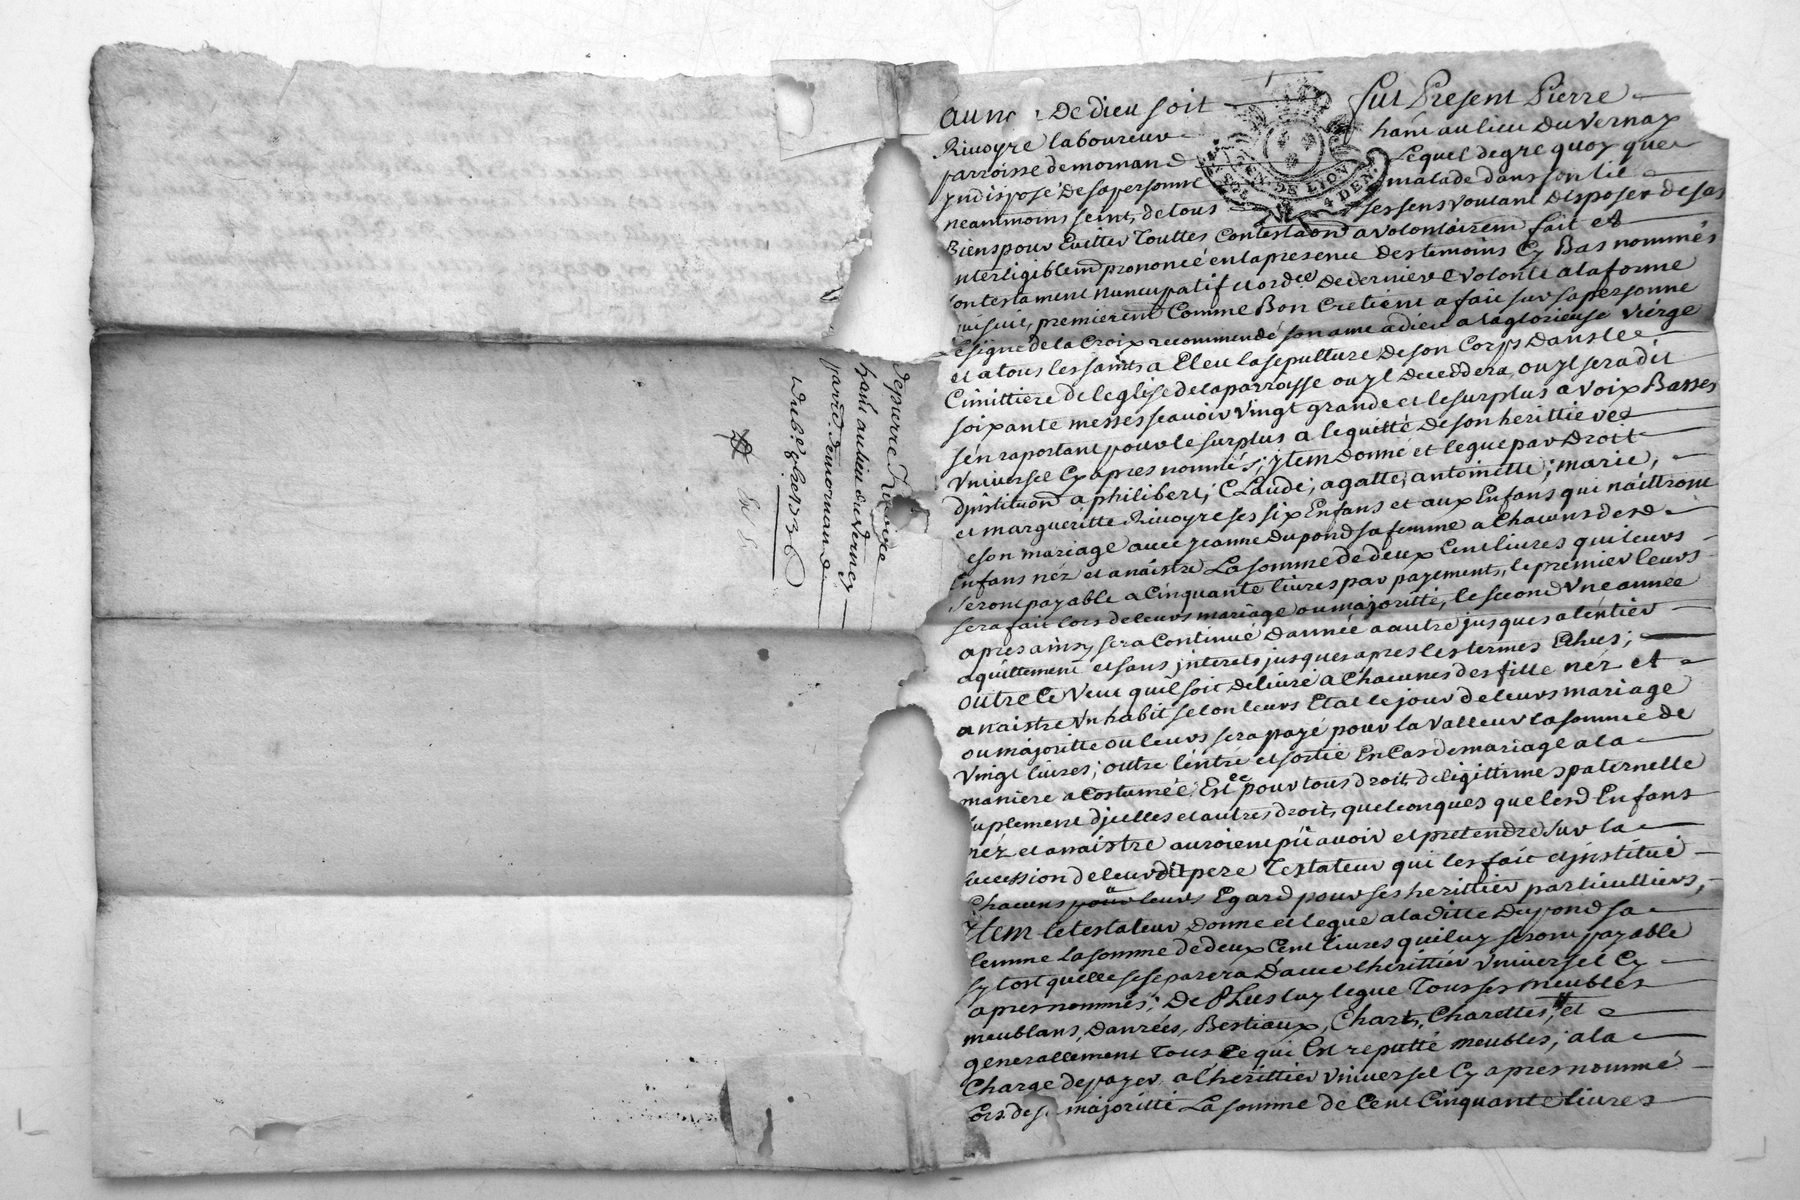 au no De dieu soit fut Present Pierre
Riuoyre laboureur hant au lieu du vernay
parroisse demornand Lequel de gre quoy que
yndisposé de sa personne malade dans son lit
neantmoins seint, de tous ses sens voulant disposer de ses
Biens pour Euitter Touttes Contestaõns a volontairem fait et
ntelligiblemt prononcé en la presence des temoins Cy Bas nommés
son testament nuncupatif et ordce de derniere volonté a la forme
qui suit, premierent Comme Bon Cretient a fait sur sa personne
le signe de la Croix recommendé son ame a dieu a la glorieuse vierge
et a tous les saints a Eleu la sepulture de son Corps dans le
Cimittiere de leglise de la parroisse ou yl deceddera, ou yl sera dit
soixante messes scauoir vingt grande et le surplus a voix Basses
sén raportant pour le surplus a lequitté de son herittier
vniuersel Cy apres nommés; ytem donne et legue par Droit
djnstitution a philibert; Claude; agatte; antoinette; marie;
et margueritte Riuoyre ses six Enfans et aux Enfans qui naittront
e son mariage auec jeanne dupond sa femme a Chacuns desd
Enfans néz et a naistre La somme de deux Cent liures qui leurs
seront payable a Cinquante liures par payements, le premier leurs
sera fait lors de leurs mariage ou majoritté, le second vne année
apres ainsy sera Continué dannée a autre jusques a lentier
aquittement et sans jnterets jusques apres les termes Echus;
outre Ce veut quil soit deliuré a Chacunes des fille néz et
a naistre vn habit selon leurs Etat le jour de leurs mariage
ou majoritté ou leurs sera payé pour la valleur la somme de
vingt liures; outre léntré et sortie En Cas de mariage a la
maniere acostumée; Est ce pour tous droit de ligittimes paternelle
suplement djcelles et autres droits quelconques que lesd Enfans
néz et a naistre auroient pû auoir et pretendre sur la
succession de leurdit pere Testateur qui les fait et jnstitué
Chacuns pour leurs Egard pour ses herittier particulliers,
ytem le testateur donne et legue a laditte Dupond sa
femme La somme de deux Cent liures qui luy seront payable
sy tost quelle se separera dauec lherittier vniuersel Cy
apres nommés; De Plus luy legue Tous ses meubles
meublans, Danrées, Bestiaux, Chart, Charettes, et
generallement Tous Ce qui Est reputté meubles; a la
Charge de payer a lherittier vniuersel Cy apres nommé
Lors de sa majoritté La somme de Cent Cinquante liures
de pierre Riuoyre
hant au lieu du verney
parr de mornand
du 8e xbre 1736